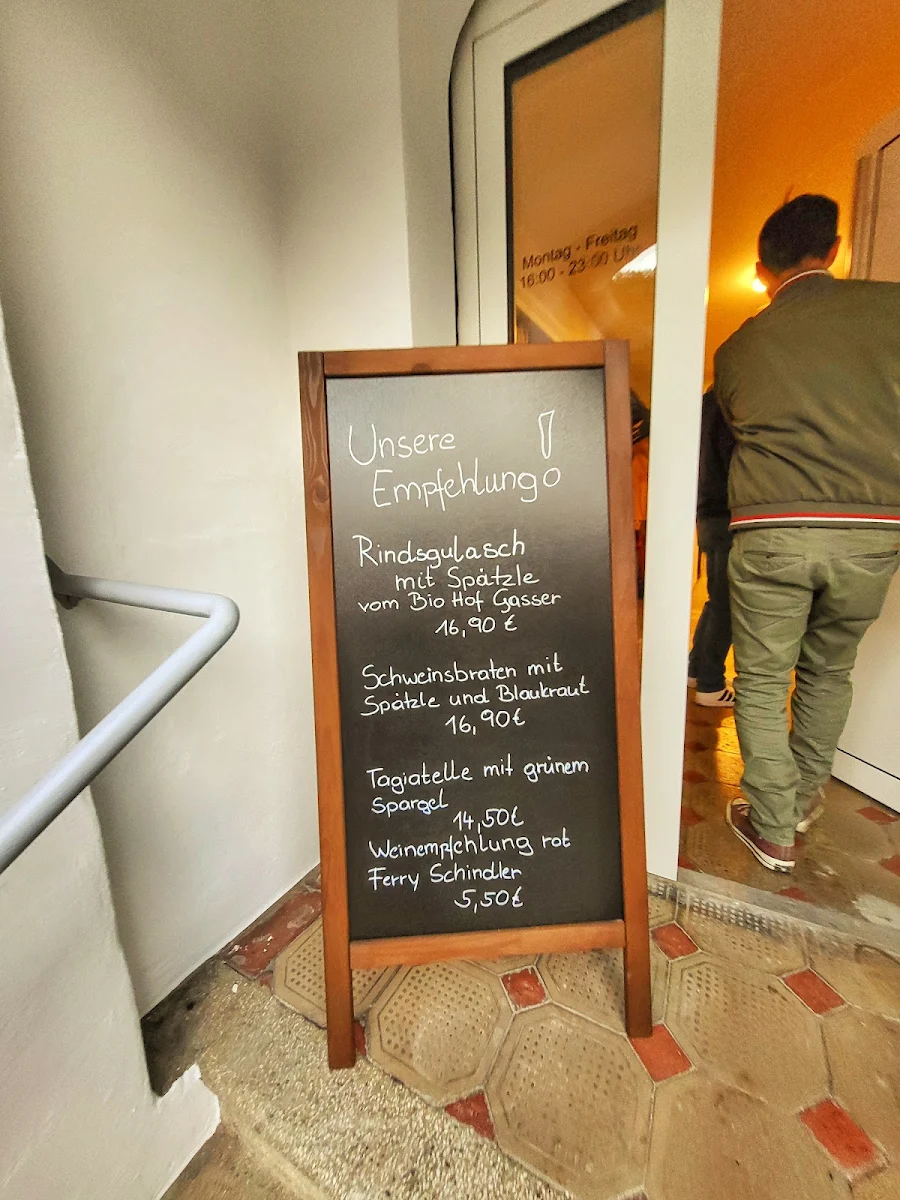 Montag - Freitag
16:00 - 23:00 Uhr
Unsere
Empfehlung!
Rindsgulasch
mit Spätzle
vom Bio Hof Gasser
16,90 €
Schweinsbraten mit
Spätzle und Blaukraut
16,90€
Tagiatelle mit grünem
Spargel
14,50€
Weinempfehlung rot
Ferry Schindler
5,50€